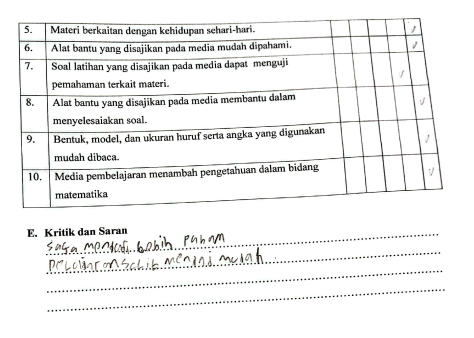 5. Materi berkaitan dengan kehidupan sehari-hari.
6. Alat bantu yang disajikan pada media mudah dipahami.
7. Soal latihan yang disajikan pada media dapat menguji
pemahaman terkait materi.
8. Alat bantu yang disajikan pada media membantu dalam
menyelesaiakan soal.
9. Bentuk, model, dan ukuran huruf serta angka yang digunakan
mudah dibaca.
10. Media pembelajaran menambah pengetahuan dalam bidang
matematika
E. Kritik dan Saran
saya menjadi lebih paham
mudah